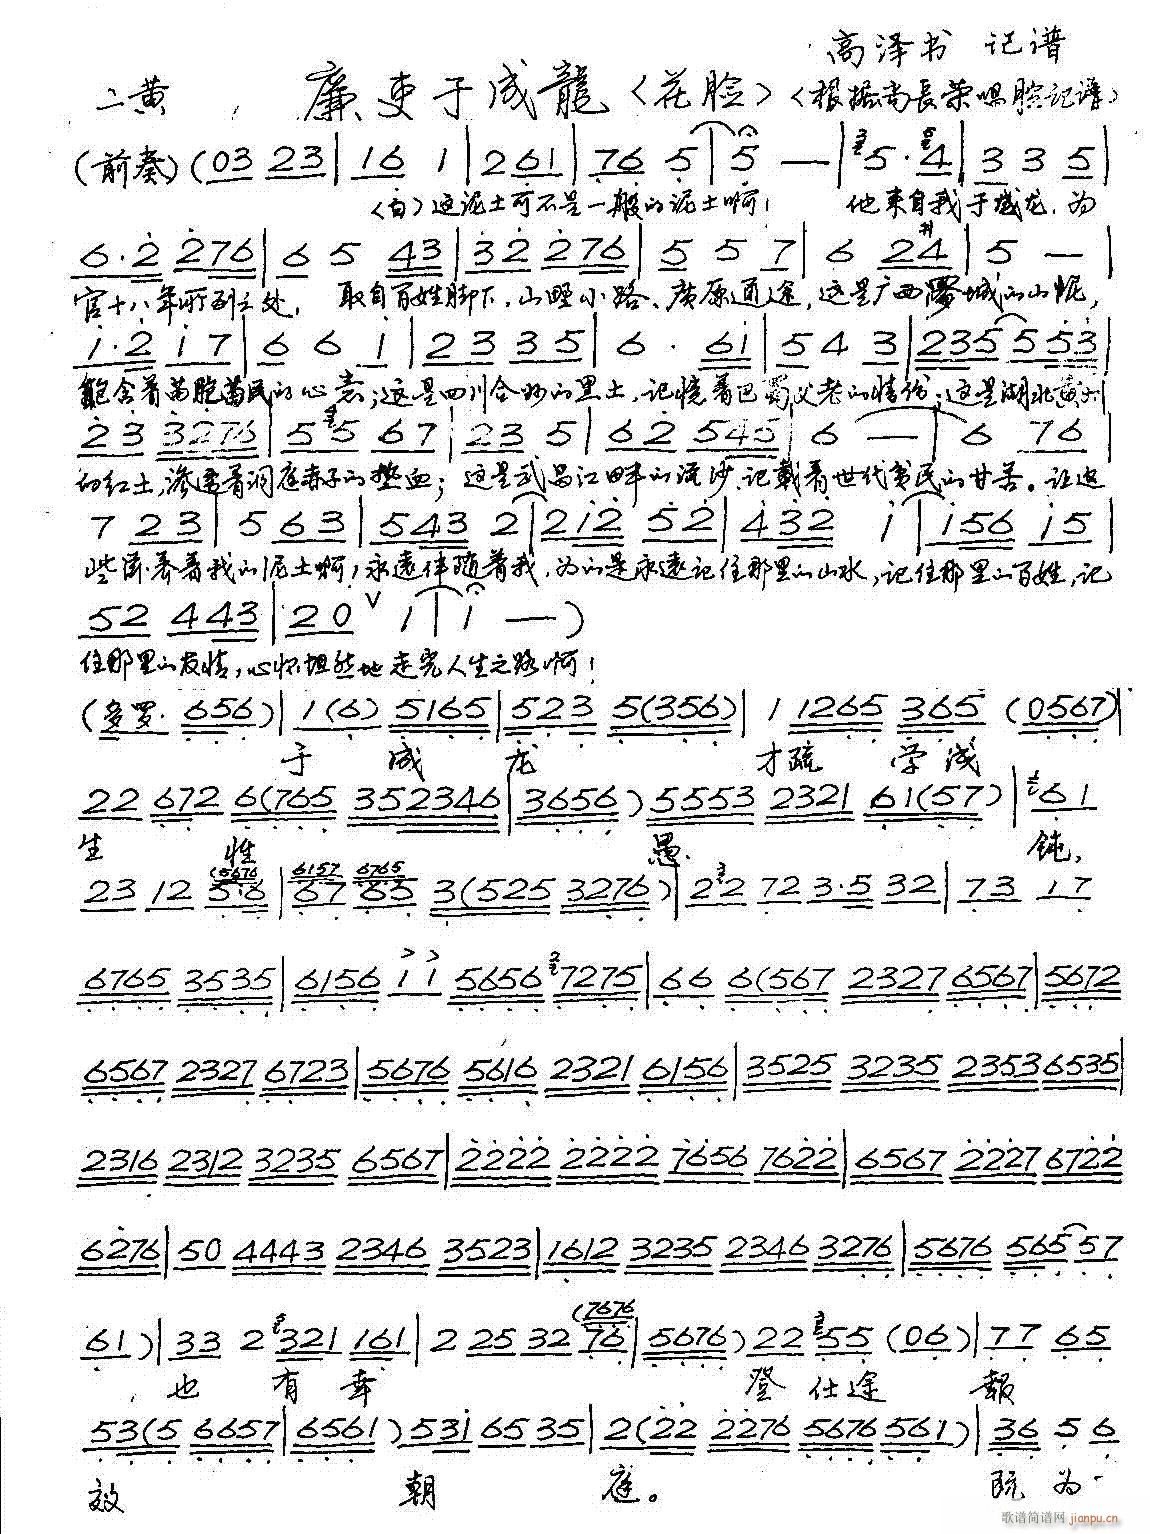 高泽书 记谱
二黄 廉吏于成龍〈花脸〉〈根据尚長荣唱腔记谱〉
(前奏)(03 23|16 1|261|76 5|5 —|5·4|3 3 5
〈白〉这泥土可不是一般的泥土啊! 他来自我于成龙,为
6·2 276|6 5 43|32 276|5 5 7|6 24|5 —|
官十八年所到之处, 取自百姓脚下,山野小路、广原通途,这是广西罗城的山泥,
1·2 17|6 6 1|2 3 3 5|6 · 61|5 4 3|235 5 53|
饱含着苗胞苗民的心志;这是四川合州的黑土,记忆着巴蜀父老的情份;这是湖北黄州
23 3276|55 67|23 5|62 545|6 —|6 76
的红土,渗透着洞庭赤子的热血;这是武昌江畔的流沙、记载着世代贫民的甘苦。让这
7 23|5 63|543 2|212 52|432 1|156 15|
些滋养着我的泥土啊!永远伴随着我,为的是永远记住那里的山水,记住那里的百姓,记
52 443|20 ∨ 1|1 —)
住那里的友情,心怀坦然地走完人生之路啊!
(多罗· 656)|1(6) 5165|523 5(356)|1 1265 365 (0567)|
于 成 龙 才疏 学浅
22 672 6(765 352346|3656) 5553 2321 61(57)|61
生 性 愚 钝,
(5676 6157 6765
23 12 5·6|67 65 3(525 3276)|22 72 3·5 32|73 17
6765 3535|6156 11 5656 7275|66 6(567 2327 6567|5672
6567 2327 6723|5676 5616 2321 6156|3525 3235 2353 6535|
2316 2312 3235 6567|2222 2222 7656 7622|6567 2227 6722
6276|50 4443 2346 3523|1612 3235 2346 3276|5676 565 57
(7676
61)|33 2 321 161|2 25 32 76|5676) 22 55 (06)|77 65
也 有 幸 登 仕 途 報
53(5 6657|6561) 531 65 35|2(22 2276 5676 561)|36 5 6
效 朝 庭。 既 为
歌谱简谱网
jianpu.cn